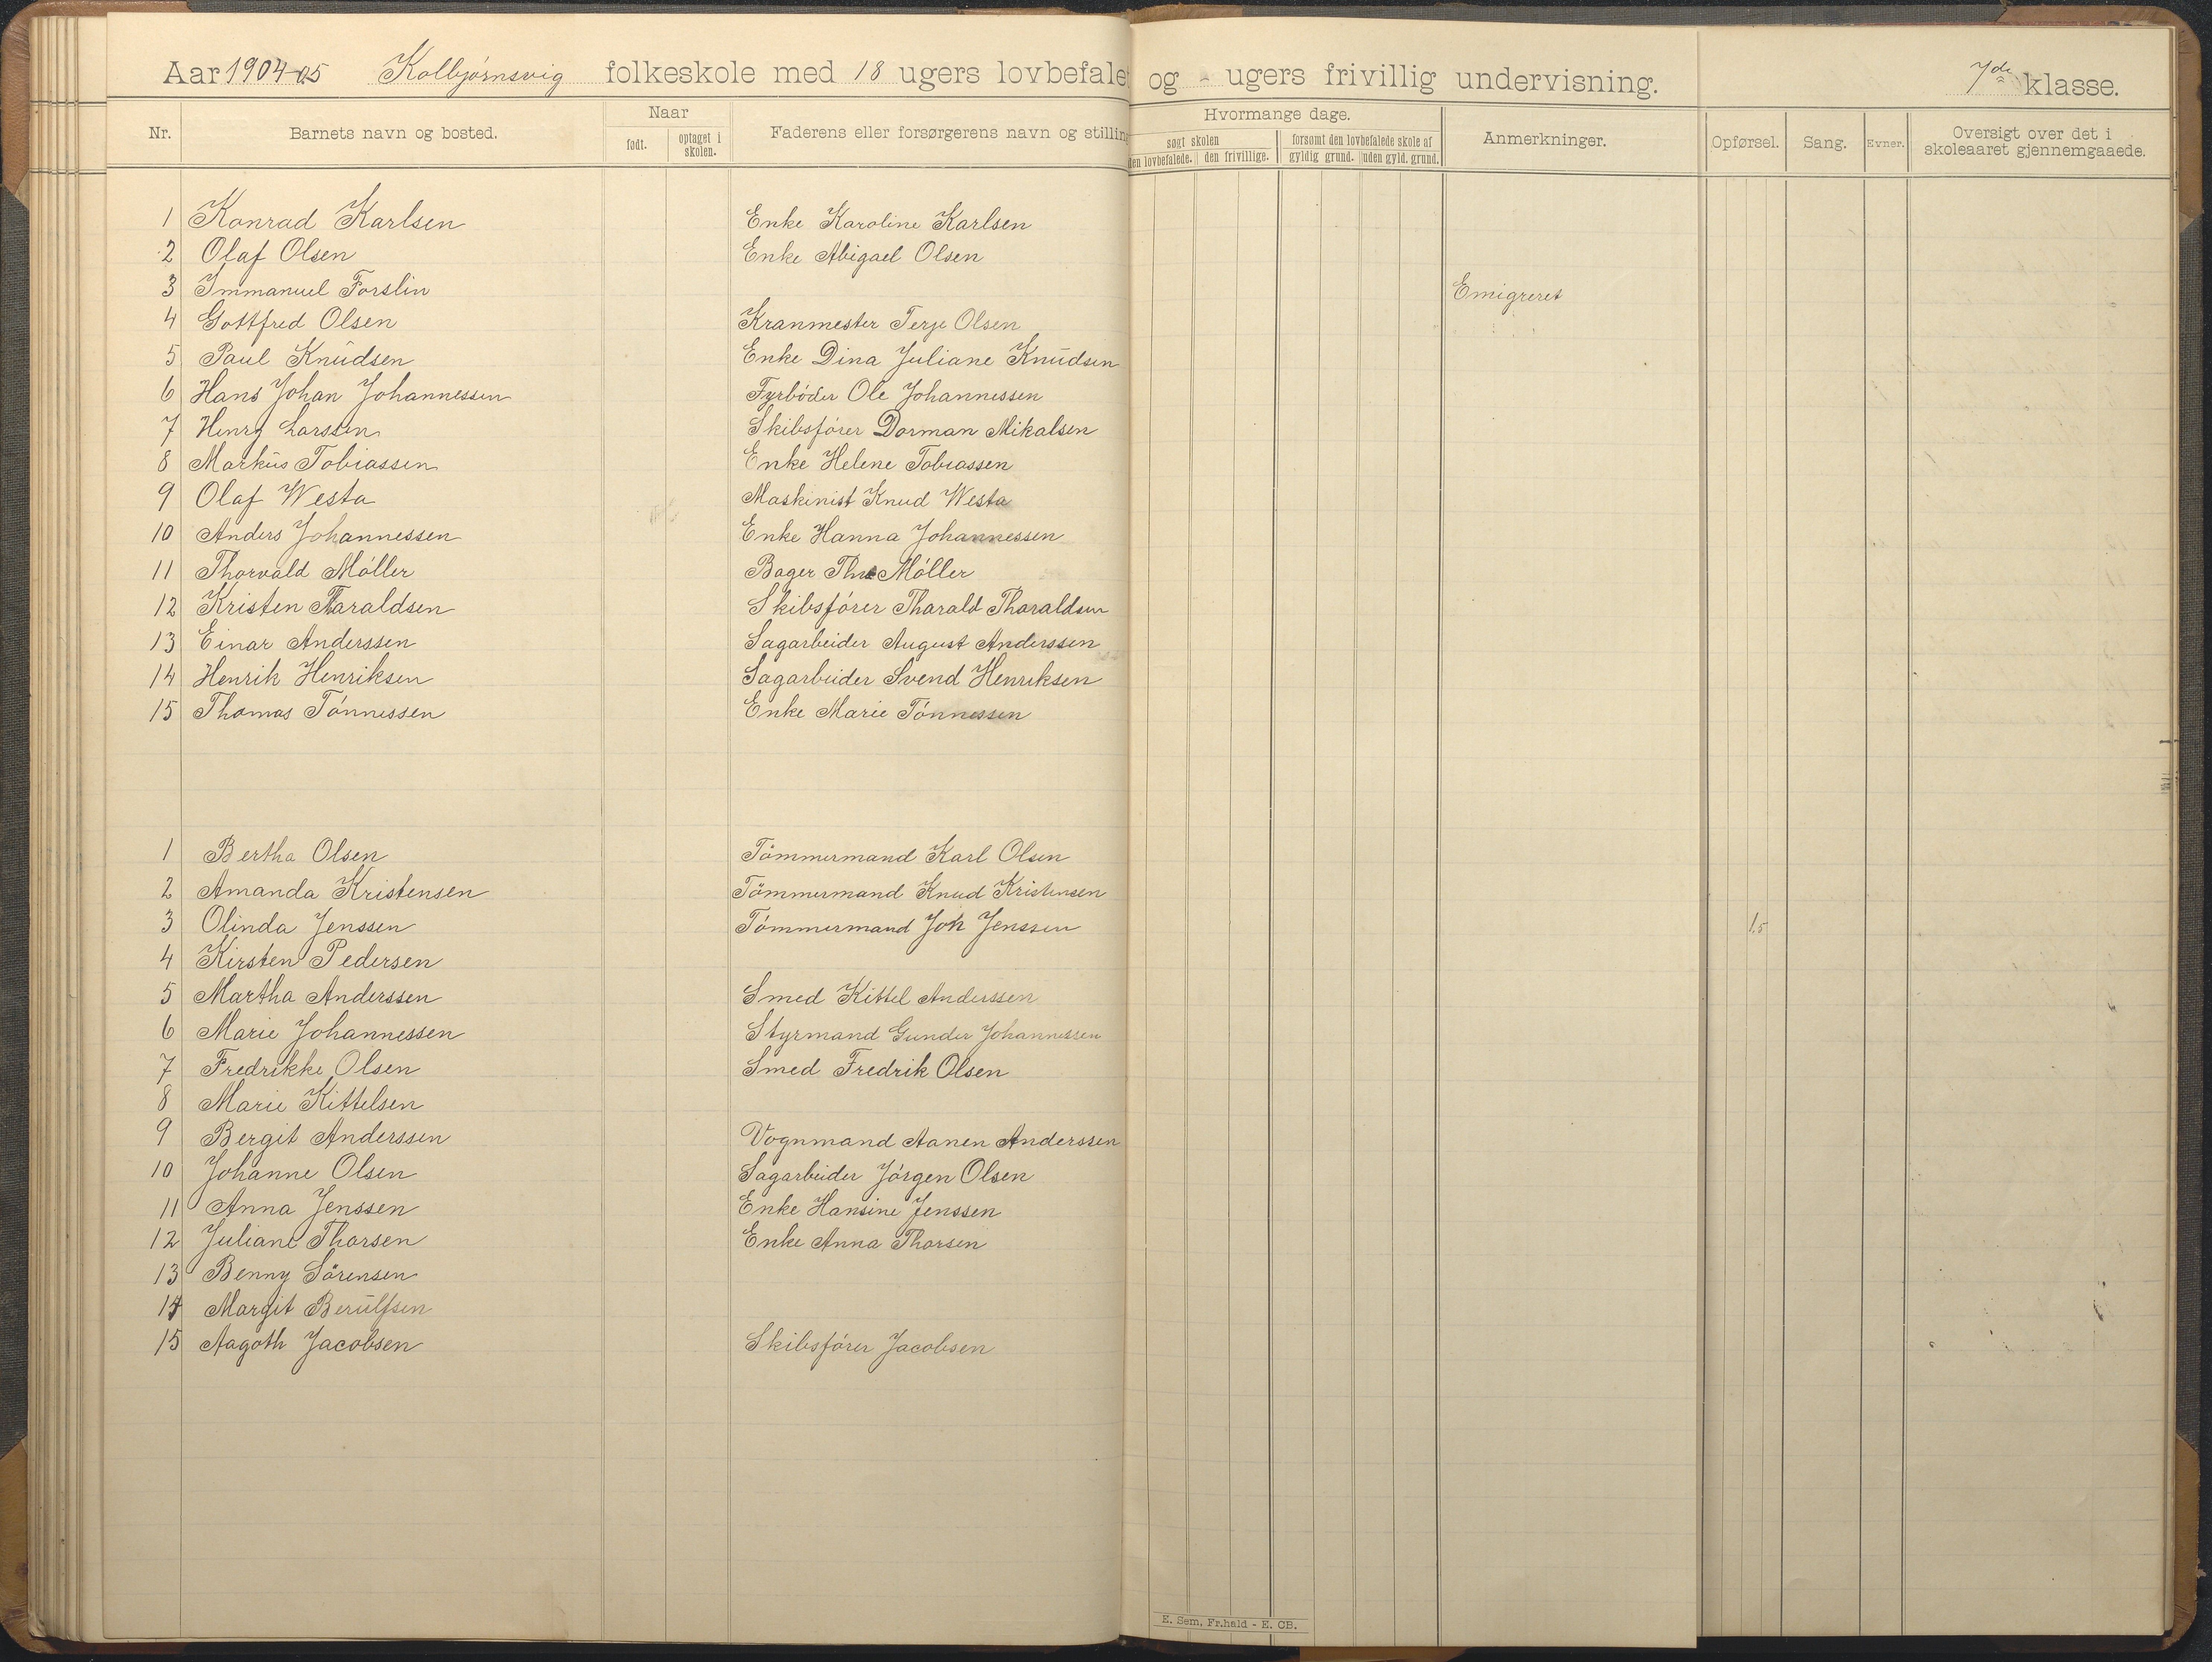 Aar 1904-05 Kolbjørnsvig folkeskole med 18 ugers lovbefale og - ugers frivillig undervisning. 7de klasse.
Nr. Barnets navn og bosted. Naar født. optaget i skolen. Faderens eller forsørgerens navn og stilling Hvormange dage. søgt skolen den lovbefalede. den frivillige. forsømt den lovbefalede skole af gyldig grund. uden gyld. grund. Anmerkninger. Opførsel. Sang. Evner. Oversigt over det i skoleaaret gjennemgaaede.
1 Konrad Karlsen Enke Karoline Karlsen
2 Olaf Olsen Enke Abigael Olsen
3 Immanuel Forslin Emigreret
4 Gottfred Olsen Kranmester Terje Olsen
5 Paul Knudsen Enke Dina Juliane Knudsen
6 Hans Johan Johannessen Fyrbøder Ole Johannessen
7 Henry Larssen Skibsfører Dorman Mikalsen
8 Markus Tobiassen Enke Helene Tobiassen
9 Olaf Westa Maskinist Knud Westa
10 Anders Johannessen Enke Hanna Johannessen
11 Thorvald Møller Bager Møller
12 Kristen Tharaldsen Skibsfører Tharald Tharaldsen
13 Einar Anderssen Sagarbeider August Anderssen
14 Henrik Henriksen Sagarbeider Svend Henriksen
15 Thomas Tønnessen Enke Marie Tønnessen
1 Bertha Olsen Tømmermand Karl Olsen
2 Amanda Kristensen Tømmermand Knud Kristensen
3 Olinda Jenssen Tømmermand Joh Jenssen 1.5
4 Kirsten Pedersen
5 Martha Anderssen Smed Kittel Anderssen
6 Marie Johannessen Styrmand Gunder Johannessen
7 Fredrikke Olsen Smed Fredrik Olsen
8 Marie Kittelsen
9 Bergit Anderssen Vognmand Aanen Anderssen
10 Johanne Olsen Sagarbeider Jørgen Olsen
11 Anna Jenssen Enke Hansine Jenssen
12 Juliane Thorsen Enke Anna Thorsen
13 Benny Sørensen
14 Margit Berulfsen
15 Aagoth Jacobsen Skibsfører Jacobsen
E. Sem, Fr.hald - E. CB.